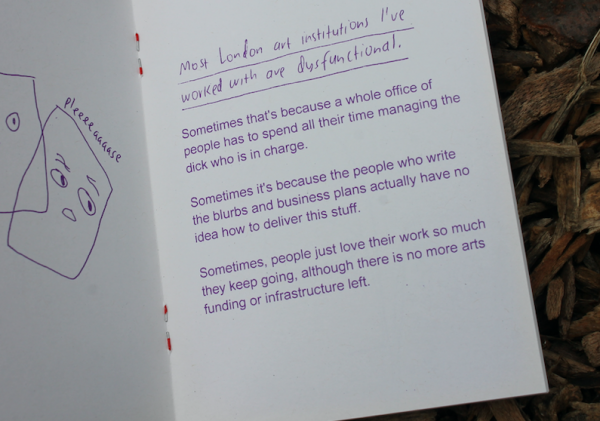 pleeeeaaaase
Most London art institutions I've
worked with are dysfunctional.
Sometimes that's because a whole office of
people has to spend all their time managing the
dick who is in charge.
Sometimes it's because the people who write
the blurbs and business plans actually have no
idea how to deliver this stuff.
Sometimes, people just love their work so much
they keep going, although there is no more arts
funding or infrastructure left.